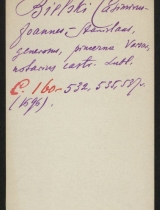 Bielski Casimirus
Joannes, - Stanislaus,
generosus, pincerna Varsa,
notarius castr. Lubl.
C. 160 - 532, 535, 537v.
(1696)